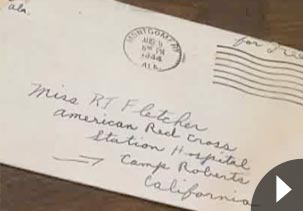 Ala.
for Free
MONTGOMERY
AUG 9
5 PM
1944
ALA.
Miss RT Fletcher
American Red Cross
Station Hospital
Camp Roberts
California